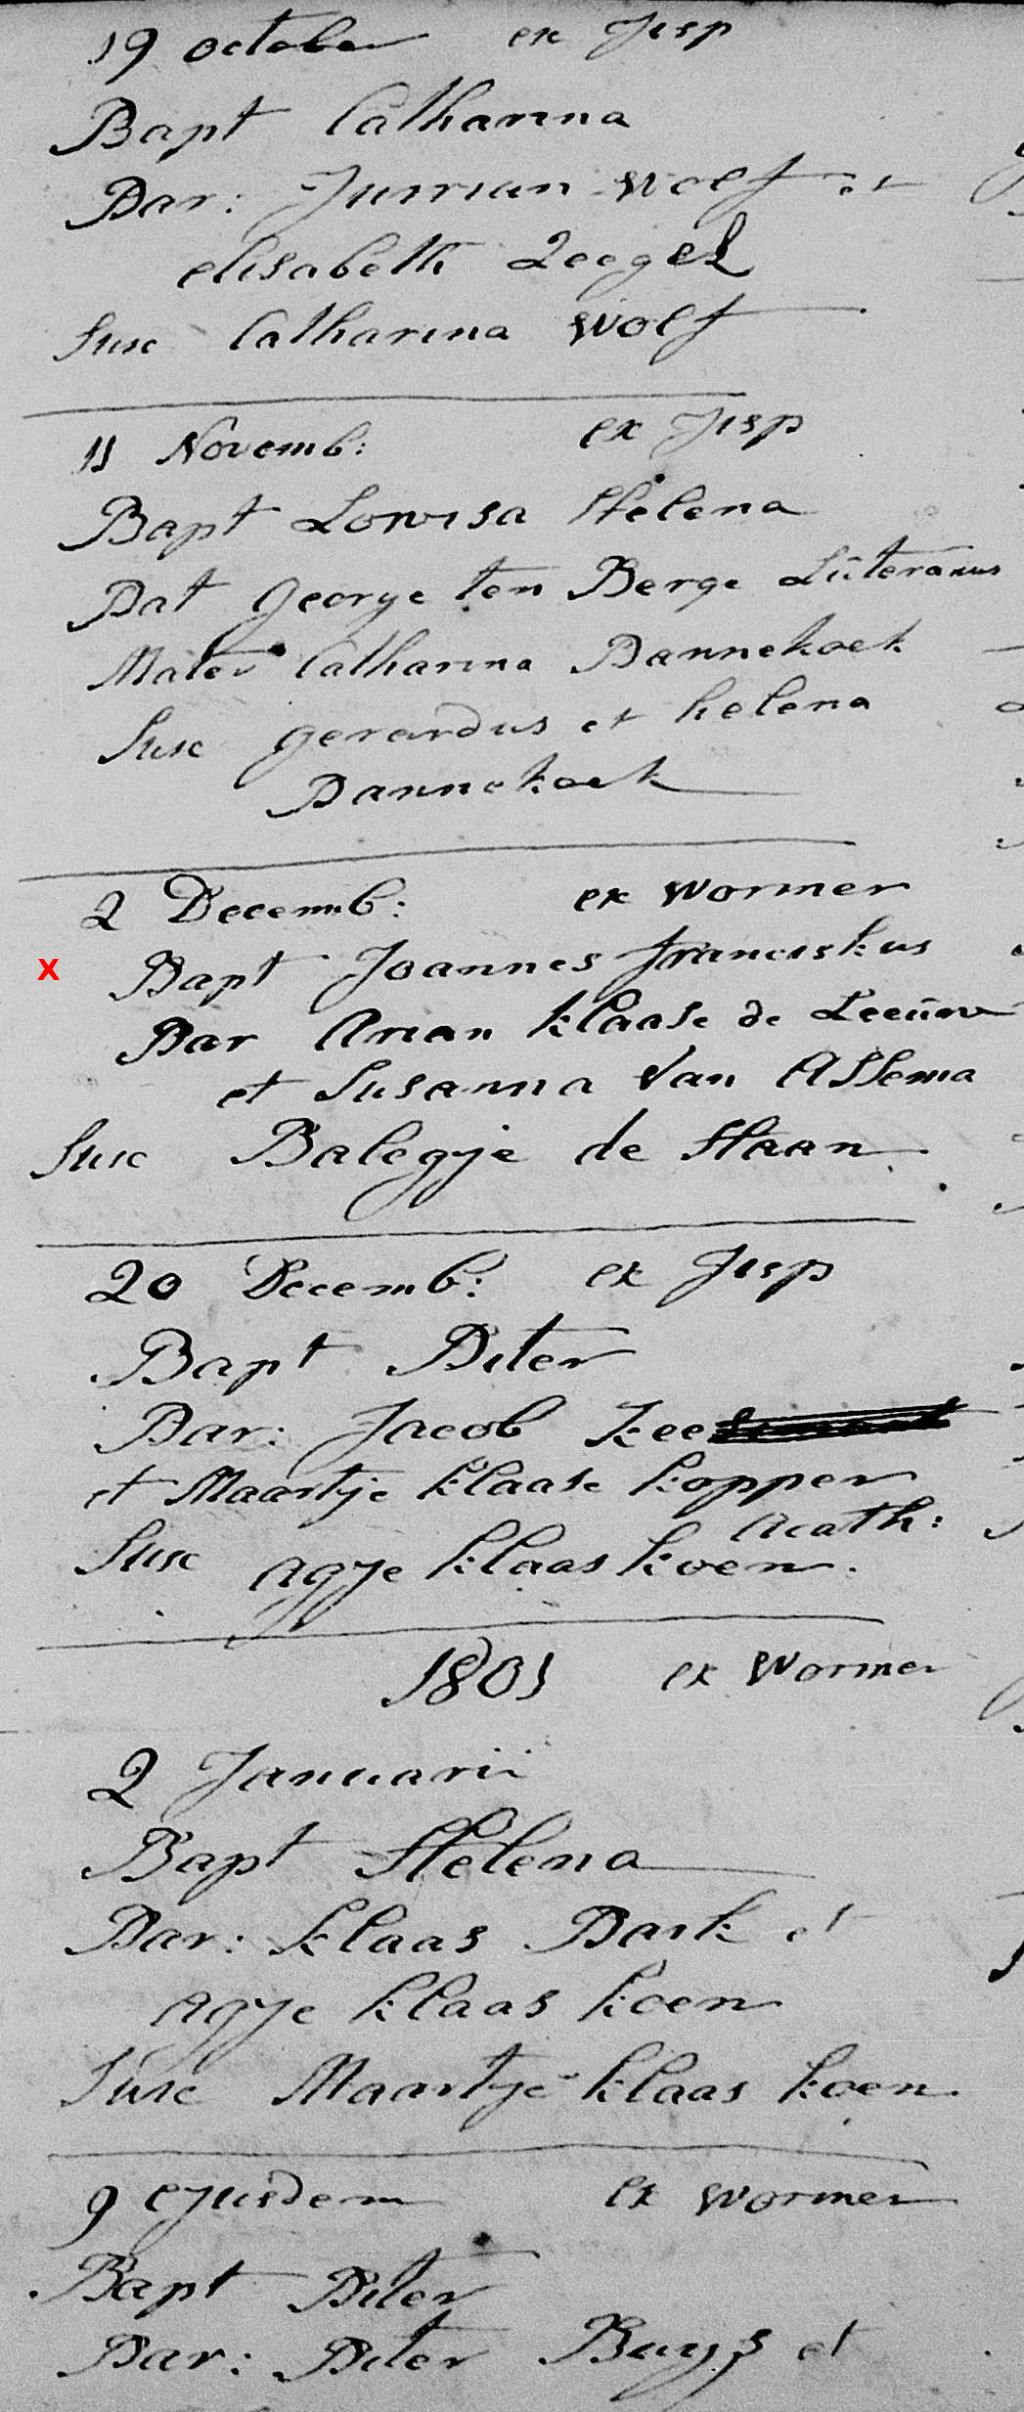 19 october ex Jisp
Bapt Catharina
Par: Jurrian Wolf et
elisabeth Zeegel
Susc Catharina Wolf
11 Novemb: ex Jisp
Bapt Lowisa Helena
Pat george ten Berge Luteranus
Mater Catharina Pannekoek
Susc gerardus et helena
Pannekoek
2 Decemb: ex Wormer
X Bapt Joannes franciskus
Par Arian klaase de Leeuw
et Susanna Van Assema
Susc Balegje de Haan
20 Decemb: ex Jisp
Bapt Piter
Par: Jacob kee
et Maartje klaase kopper
acath:
Susc agje klaas koen.
1801 ex Wormer
2 Januarii
Bapt Helena
Par: klaas Park et
agje klaas koen
Susc Maartje klaas koen.
9 ejusdem ex wormer
Bapt Piter
Par: Piter Buys et